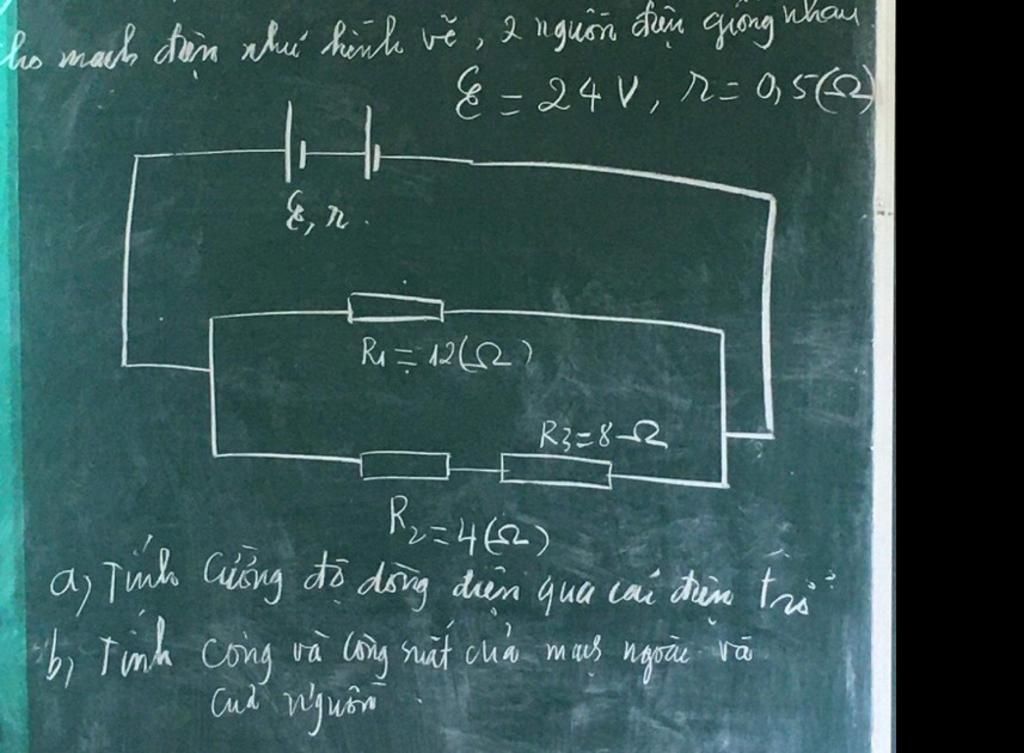 ho mạch điện như hình vẽ, 2 nguồn điện giống nhau
ℰ = 24 V, r = 0,5(Ω)
ℰ, r.
R1 = 12(Ω)
R3 = 8 Ω
R2 = 4(Ω)
a, Tính cường độ dòng điện qua các điện trở
b, Tính công và công suất của mạch ngoài và
của nguồn.